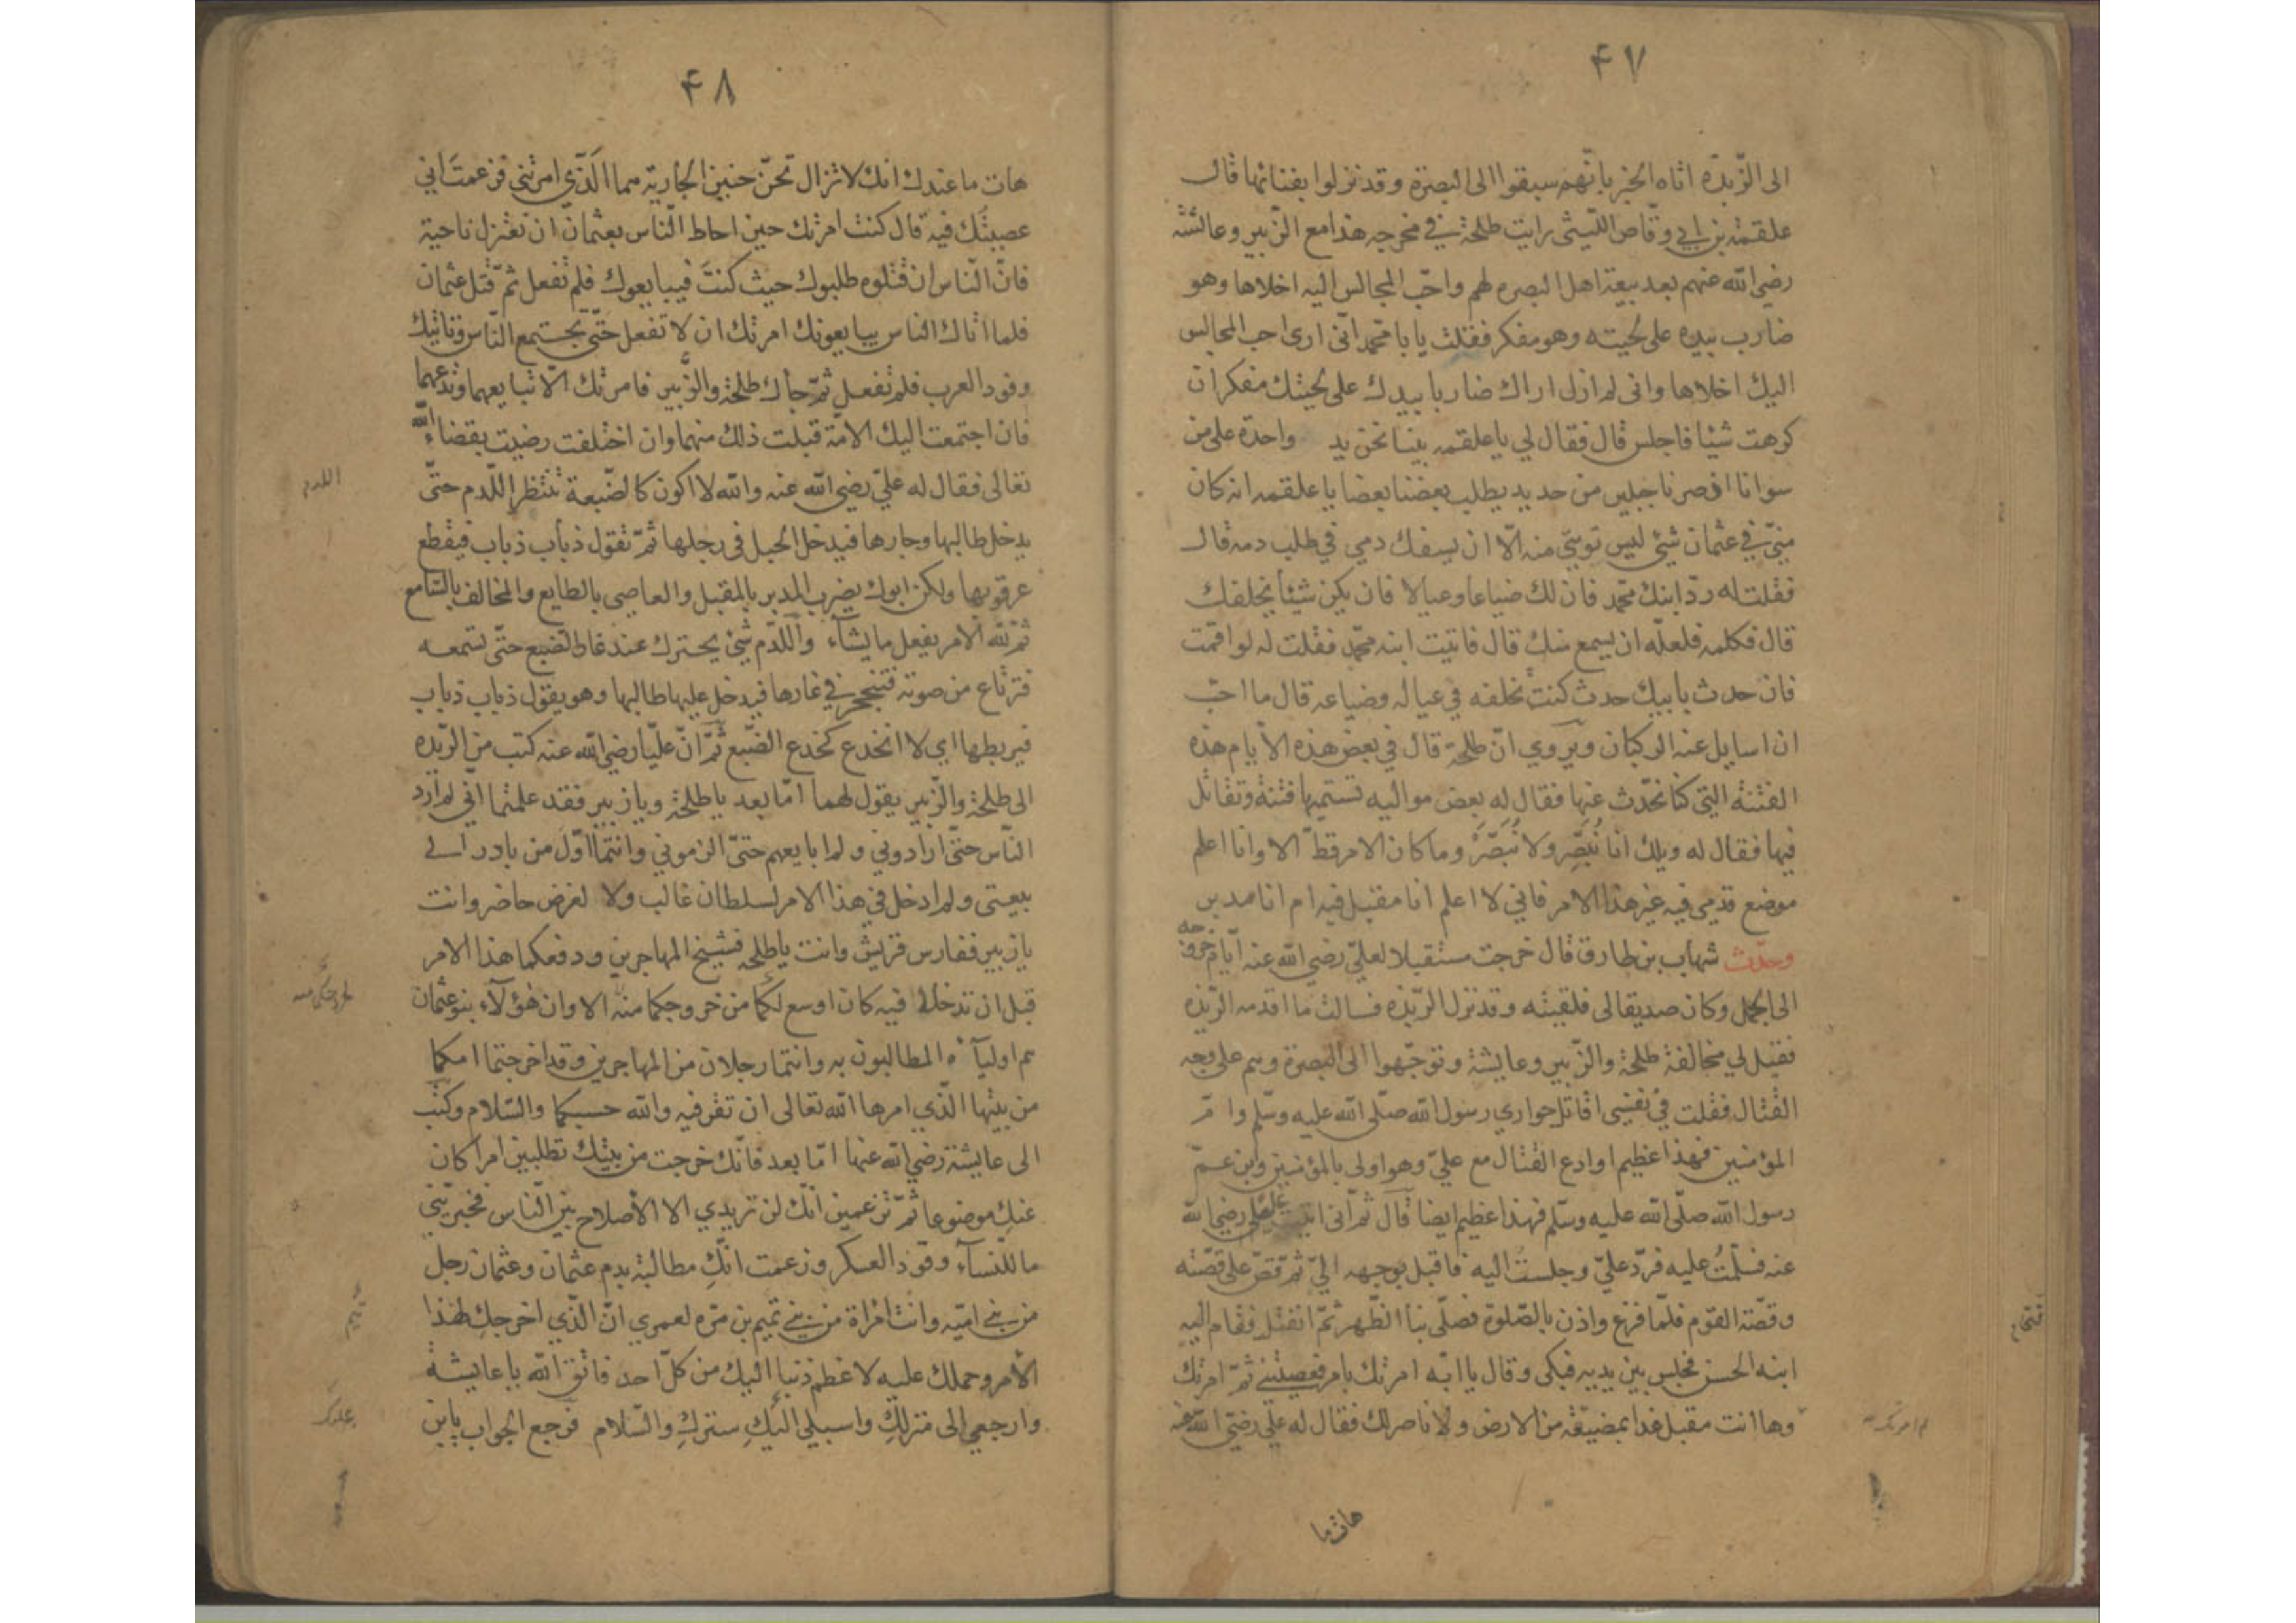 ۴۷
الى الزّبدة اتاه الخبر بانّهم سبقوا الى البصرة وقد نزلوا بفنائها قال
علقمة بن ابي وقّاص الليثى رايت طلحة في مخرجه هذا مع الزّبير وعائشة
رضي الله عنهم بعد بيعة اهل البصره لهم واحبّ المجالس اليه اخلاها وهو
ضارب بيده على لحيته وهو مفكر فقلت يا با محمّد انّى ارى احب المجالس
اليك اخلاها وانى لم ازل اراك ضاربا بيدك على لحيتك مفكرا ن
كرهت شيئا فاجلس قال فقال لي يا علقمه بينا نحن يد واحدة على من
سوانا اذ صرنا جبلين من حديد يطلب بعضنا بعضا يا علقمه انه كان
منّي في عثمان شئ ليس توبتي منه الّا ان يسفك دمي في طلب دمه قال
فقلت له ردّ ابنك محمّد فان لك ضياعا وعيالا فان يكن شيئا يخلفك
قال فكلمه فلعلّه ان يسمع منك قال فاتيت ابنه محمّد فقلت له لو اقمت
فان حدث بابيك حدث كنت تخلفه في عياله وضياعه قال ما احبّ
ان اسايل عنه الركبان ويروي انّ طلحة قال في بعض هذه الأيام هذه
الفتنة التي كنا نحدّث عنها فقال له بعض مواليه تسميها فتنة وتقاتل
فيها فقال له ويلك انا نُبَصِّر ولا نُبَصَّرُ وما كان الامر قطّ الا وانا اعلم
موضع قدمي فيه غير هذا الامر فاني لا اعلم انا مقبل فيه ام انا مدبر
وحدّث شهاب بن طارق قال خرجت مستقبلا لعليّ رضي الله عنه ايّام خروجه
الى الجمل وكان صديقا لى فلقيته وقد نزل الرّبذه فسالت ما اقدمه الرّبذه
فقيل لي مخالفة طلحة والزّبير وعايشة وتوجّهوا الى البصرة وهم على وجه
القتال فقلت في نفسى اقاتل حواري رسول الله صلّى الله عليه وسلّم وامّ
المؤمنين فهذا عظيم او ادع القتال مع عليّ وهو اولى بالمؤمنين وابن عمّ
رسول الله صلّى الله عليه وسلّم فهذا عظيم ايضا قال ثمّ انى اتيت علىّ رضي الله
عنه فسلّمتُ عليه فردّ عليّ وجلستُ اليه فاقبل بوجهه اليّ ثمّ قصّ على قصّته
وقصّة القوم فلمّا فرغ واذن بالصّلوة فصلّى بنا الظّهر ثمّ انفتل فقام اليه
ابنه الحسن فجلس بين يديه فبكى وقال يا ابه امرتك بامر فعصيتني ثمّ امرتك
وها انت مقبل غدا بمضيقة من الارض ولا ناصر لك فقال له عليّ رضي الله عنه
هات ما
۴۸
هات ما عندك انك لا تزال تحنّ حنين الجارية مما الّذي امرتني فزعمت انى
عصيتُك فيه قال كنت امرتك حين احاط النّاس بعثمان ان تعتزل ناحية
فانّ النّاس ان قتلوه طلبوك حيث كنتَ فيبايعوك فلم تفعل ثمّ قتل عثمان
فلما اتاك الناس يبايعونك امرتك ان لا تفعل حتّى يجتمع النّاس وتاتيك
وفود العرب فلم تفعل ثمّ جاك طلحة والزّبير فامرتك الّا تبايعهما وتدعهما
فان اجتمعت اليك الامّة قبلت ذلك منهما وان اختلفت رضيت بقضاء الله
تعالى فقال له عليّ رضي الله عنه والله لا اكون كالضّبعة تنتظر اللّدم حتّى
يدخل طالبها وجارها فيدخل الحبل في رجلها ثمّ تقول ذباب ذباب فيقطع
عرقوبها ولكن ابوك يضرب المدبر بالمقبل والعاصي بالطايع والمخالف بالسّامع
ثمّ لله الامر يفعل ما يشاء واللّدم شيئ يحترك عند غار الضبع حتّى تسمعه
فترتاع من صوته فتنجحر في غارها فيدخل عليها طالبها وهو يقول ذباب ذباب
فيربطها اي لا انخدع كخدع الضّبع ثمّ انّ عليّا رضي الله عنه كتب من الرّبذه
الى طلحة والزّبير يقول لهما امّا بعد يا طلحة ويا زبير فقد علمتما انّي لم ارد
النّاس حتّى ارادوني ولم ابايعهم حتّى الزموني وانتما اوّل من بادر الى
بيعتى ولم ادخل في هذا الامر لسلطان غالب ولا لغرض حاضر وانت
يا زبير ففارس قريش وانت يا طلحه فشيخ المهاجرين ودفعكما هذا الامر
قبل ان تدخلا فيه كان اوسع لكما من خروجكما منه الا وان هؤلاء بنو عثمان
هم اولياؤه المطالبون به وانتما رجلان من المهاجرين وقد اخرجتما امكما
من بيتها الّذي امرها الله تعالى ان تقر فيه والله حسبكما والسّلام وكتب
الى عايشة رضي الله عنها امّا بعد فانّك خرجت من بيتك تطلبين امرا كان
عنكِ موضوعا ثمّ تزعمين انّك لن تريدي الا الأصلاح بين النّاس فخبريني
ما للنساء وقود العسكر وزعمت انّكِ مطالبة بدم عثمان وعثمان رجل
من بني اميّه وانت امراة من بني تميم بن مرّه لعمري انّ الّذي اخرجكِ لهذا
الأمر وحملك عليه لاعظم ذنبا اليك من كلّ احد فاتق الله يا عايشة
وارجعي الى منزلكِ واسبلي اليكِ ستركِ والسّلام فرجع الجواب يا بن
اللدم